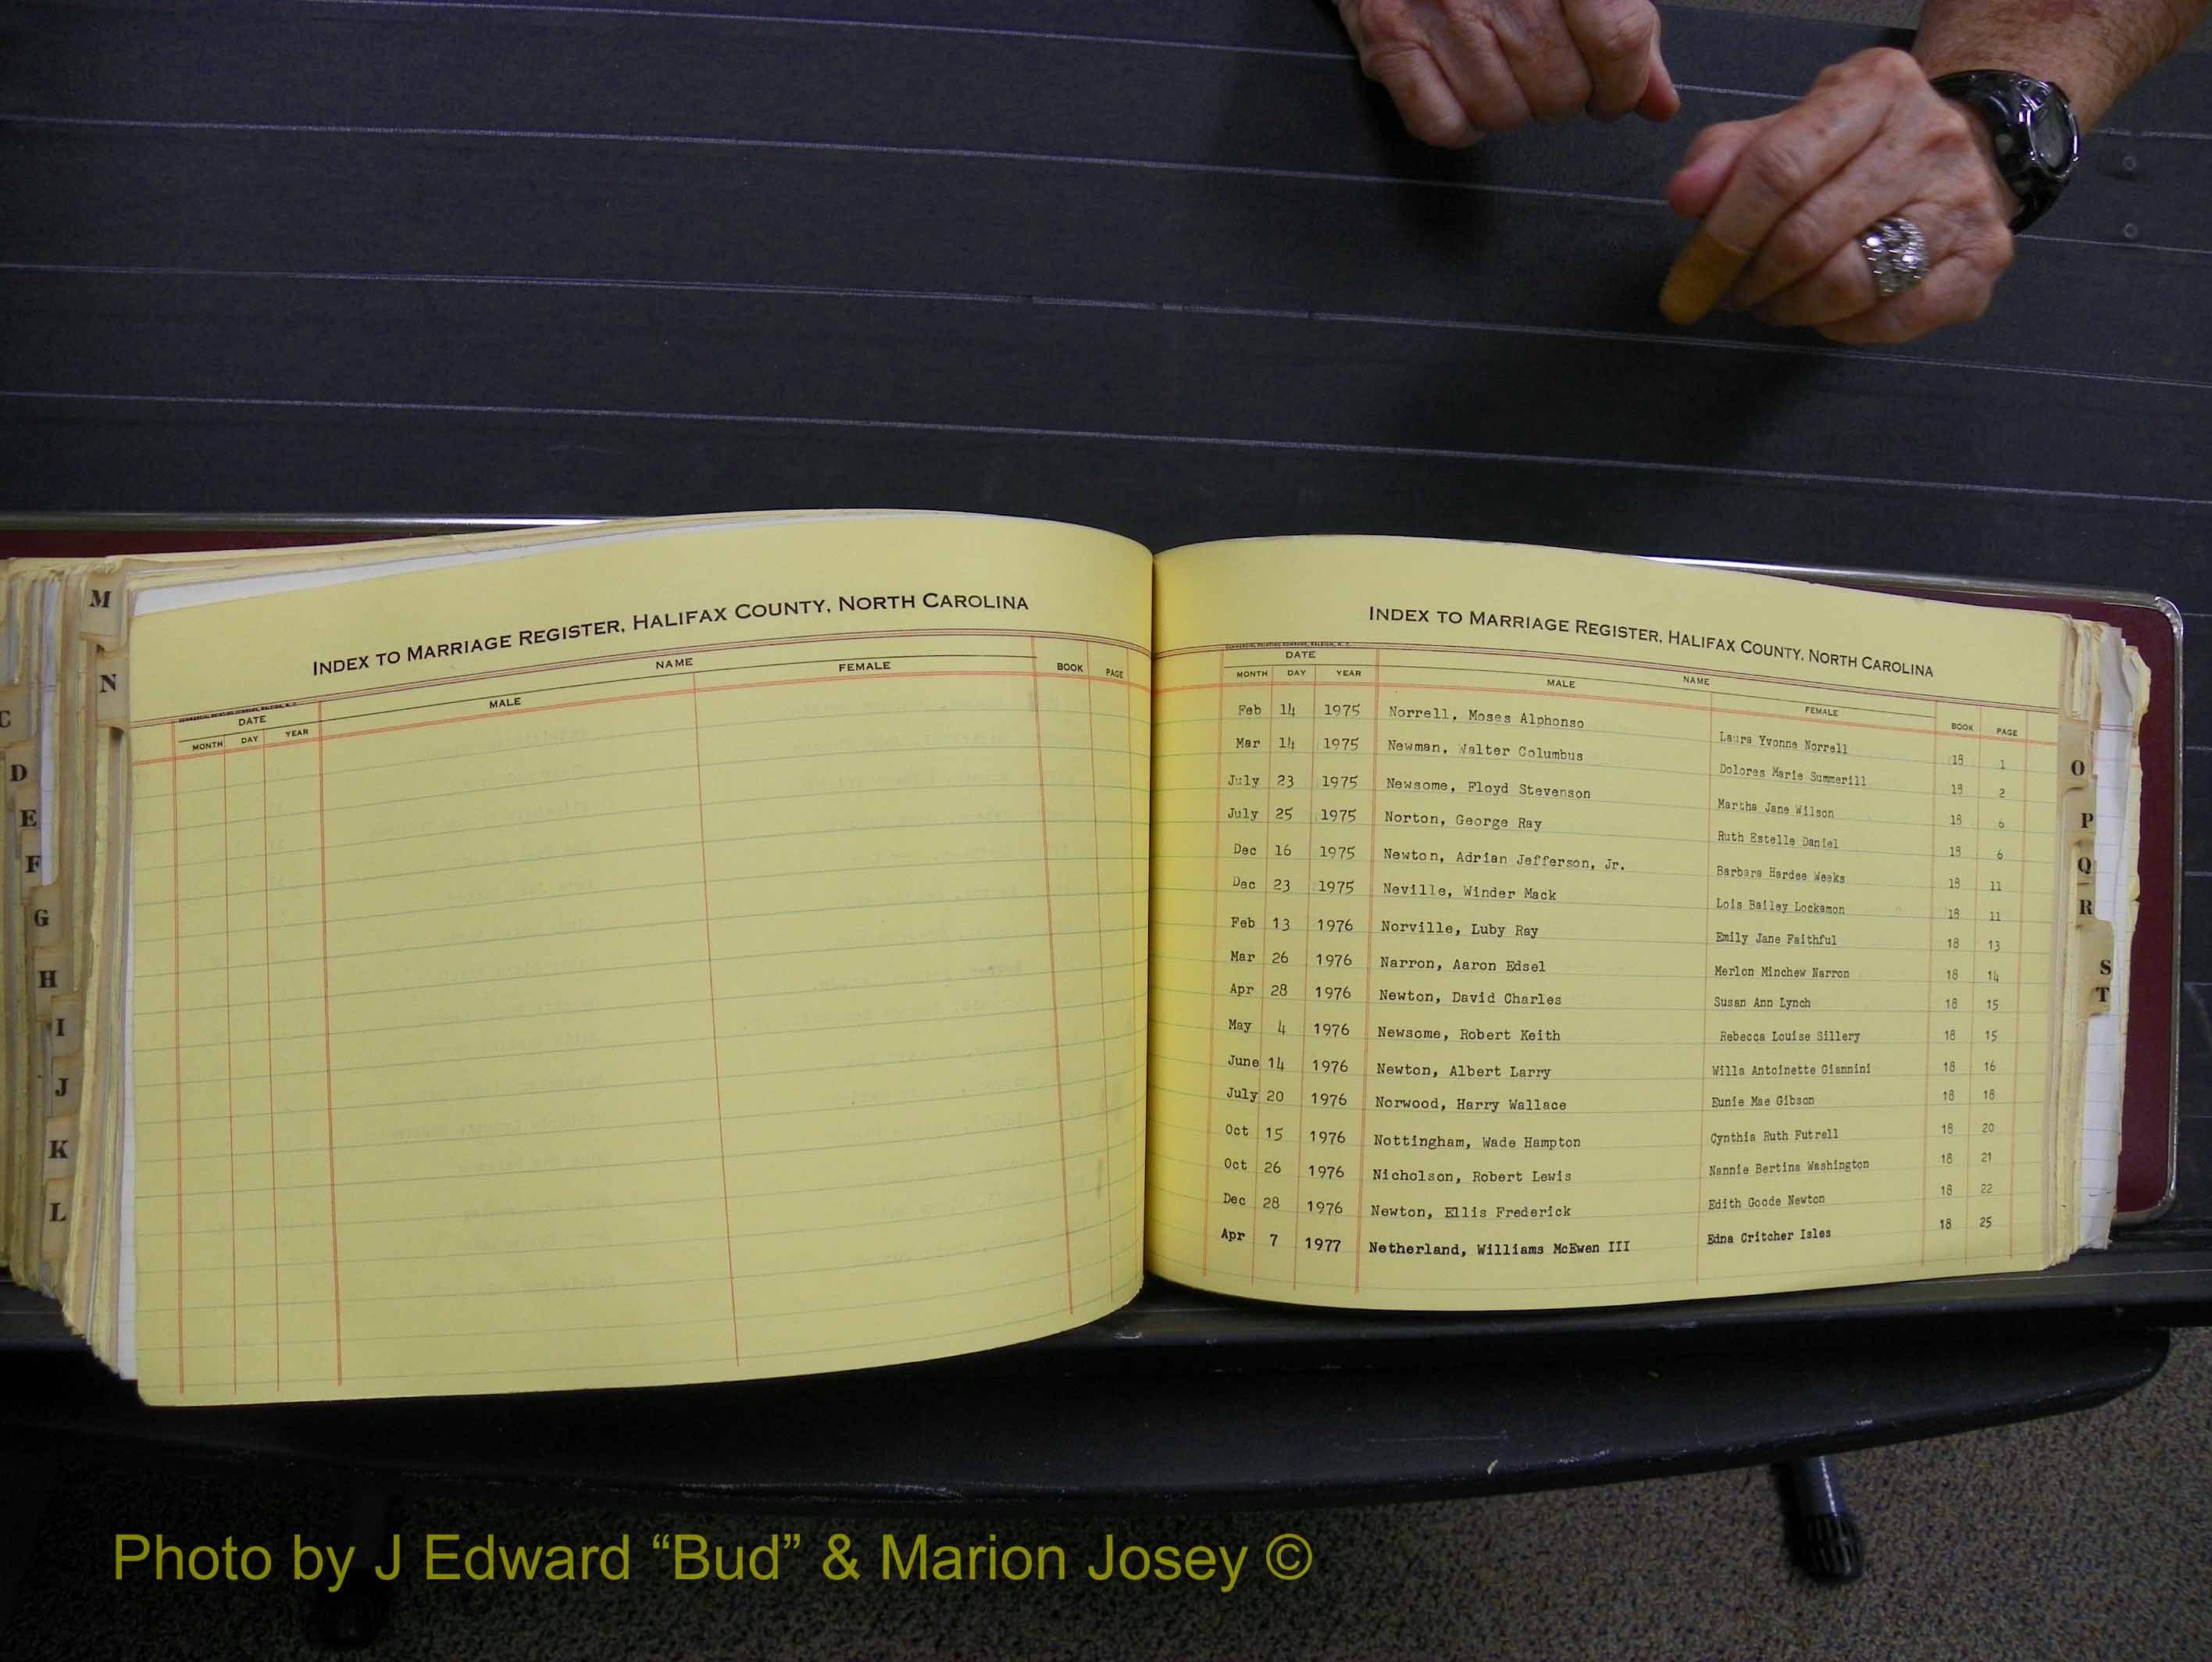 M
N
C
D
E
F
G
H
I
J
K
L
INDEX TO MARRIAGE REGISTER, HALIFAX COUNTY, NORTH CAROLINA
COMMERCIAL PRINTING COMPANY, RALEIGH, N. C.
DATE NAME
MONTH DAY YEAR MALE FEMALE BOOK PAGE
INDEX TO MARRIAGE REGISTER, HALIFAX COUNTY, NORTH CAROLINA
COMMERCIAL PRINTING COMPANY, RALEIGH, N. C.
DATE NAME
MONTH DAY YEAR MALE FEMALE BOOK PAGE
Feb 14 1975 Norrell, Moses Alphonso Laura Yvonne Norrell 18 1
Mar 14 1975 Newman, Walter Columbus Dolores Marie Summerill 18 2
July 23 1975 Newsome, Floyd Stevenson Martha Jane Wilson 18 6
July 25 1975 Norton, George Ray Ruth Estelle Daniel 18 6
Dec 16 1975 Newton, Adrian Jefferson, Jr. Barbara Hardee Weeks 18 11
Dec 23 1975 Neville, Winder Mack Lois Bailey Lockamon 18 11
Feb 13 1976 Norville, Luby Ray Emily Jane Faithful 18 13
Mar 26 1976 Narron, Aaron Edsel Merlon Minchew Narron 18 14
Apr 28 1976 Newton, David Charles Susan Ann Lynch 18 15
May 4 1976 Newsome, Robert Keith Rebecca Louise Sillery 18 15
June 14 1976 Newton, Albert Larry Willa Antoinette Giannini 18 16
July 20 1976 Norwood, Harry Wallace Eunie Mae Gibson 18 18
Oct 15 1976 Nottingham, Wade Hampton Cynthia Ruth Futrell 18 20
Oct 26 1976 Nicholson, Robert Lewis Nannie Bertina Washington 18 21
Dec 28 1976 Newton, Ellis Frederick Edith Goode Newton 18 22
Apr 7 1977 Netherland, Williams McEwen III Edna Critcher Isles 18 25
O
P
Q
R
S
T
Photo by J Edward “Bud” & Marion Josey ©